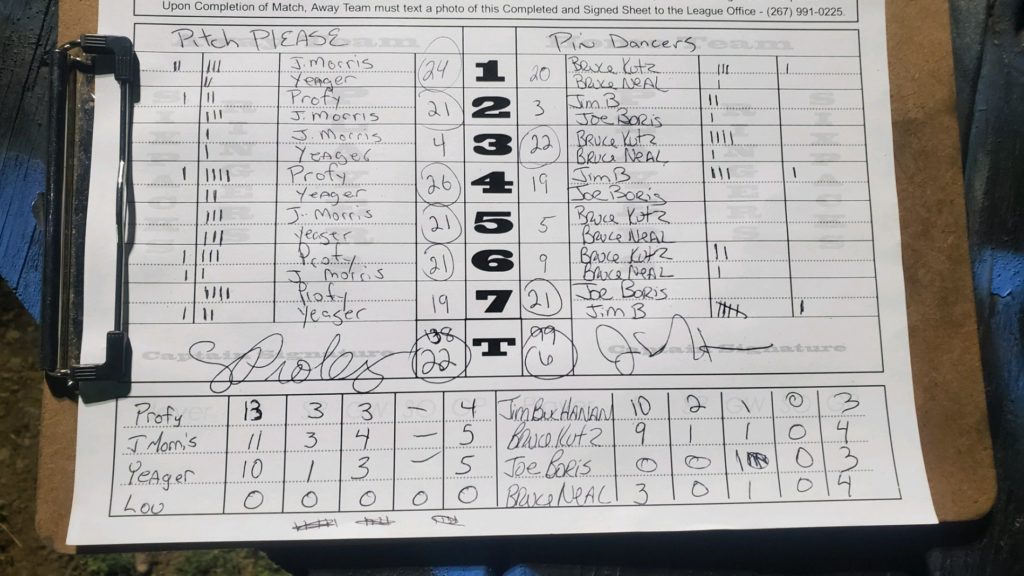 Upon Completion of Match, Away Team must text a photo of this Completed and Signed Sheet to the League Office - (267) 991-0225.
Pitch PLEASE Pin Dancers
J. Morris 24 1 20 Bruce Kutz
Yeager Bruce Neal
Profy 21 2 3 Jim B
J. Morris Joe Boris
J. Morris 4 3 22 Bruce Kutz
Yeager Bruce Neal
Profy 26 4 19 Jim B
Yeager Joe Boris
J. Morris 21 5 5 Bruce Kutz
Yeager Bruce Neal
Profy 21 6 9 Bruce Kutz
J. Morris Bruce Neal
Profy 19 7 21 Joe Boris
Yeager Jim B
138 T 99
22 6
Captain Signature Captain Signature
Profy 13 3 3 - 4 Jim Buchanan 10 2 1 0 3
J Morris 11 3 4 - 5 Bruce Kutz 9 1 1 0 4
Yeager 10 1 3 - 5 Joe Boris 0 0 1 0 3
Lou 0 0 0 0 0 Bruce Neal 3 0 1 0 4